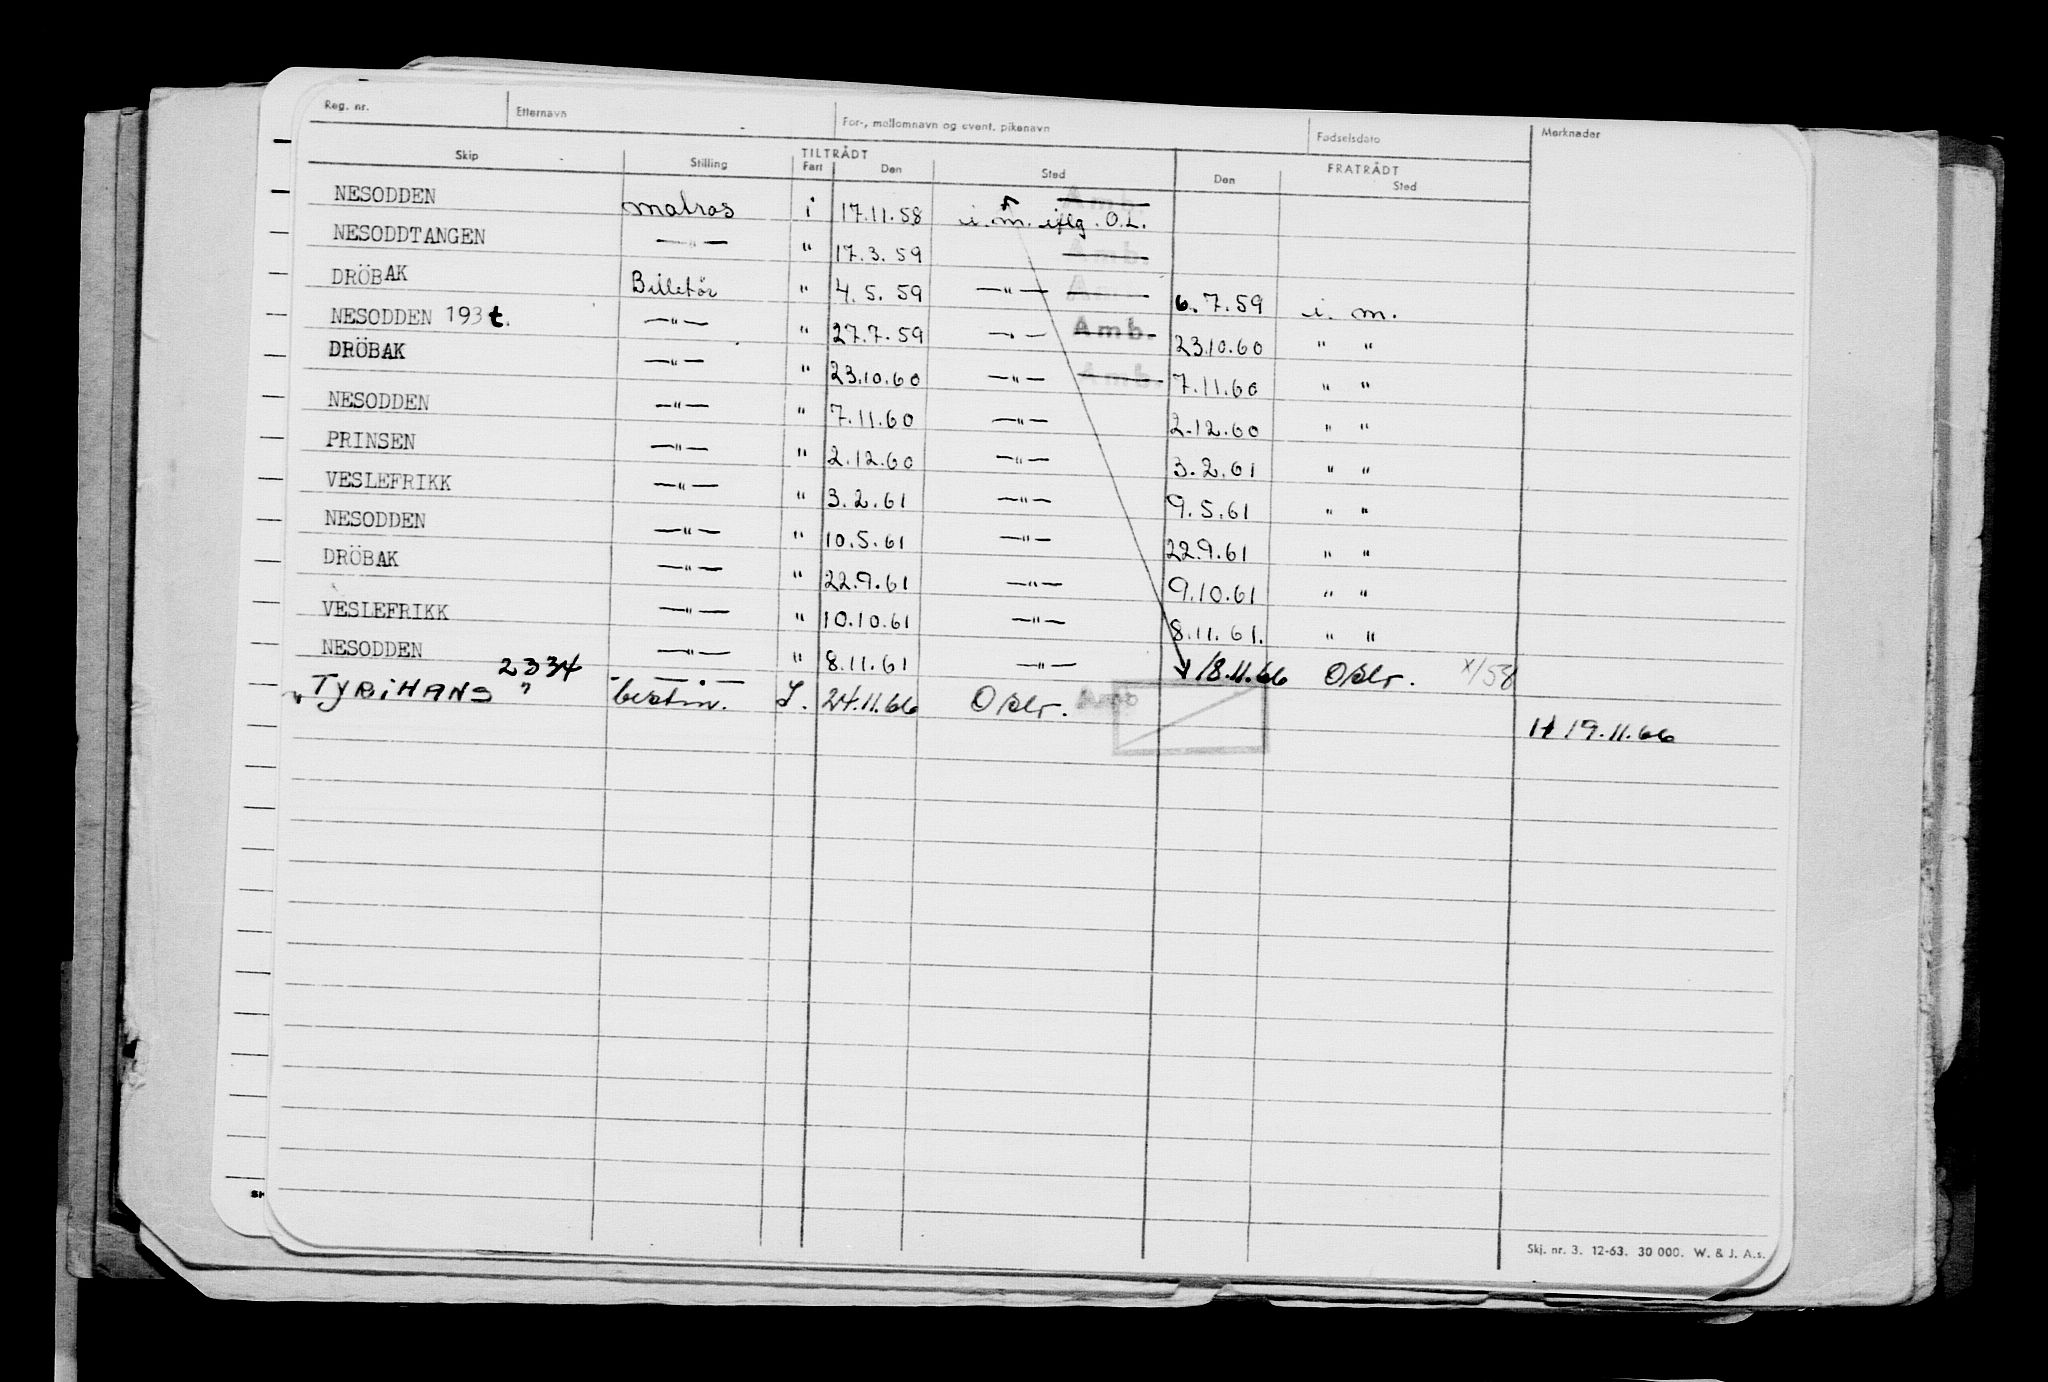 Reg. nr. Etternavn For-, mellomnavn og event. pikenavn Fødselsdato Merknader
Skip Stilling TILTRÅDT Fart Den Sted FRATRÅDT Den Sted
NESODDEN matros i 17.11.58 i. m. iflg. O.L. Amb.
NESODDTANGEN —"— " 17.3.59 Amb.
DRÖBAK Billetör " 4.5.59 —"— Am 6.7.59 i. m.
NESODDEN 193 t. —"— " 27.7.59 —"— Amb. 23.10.60 " "
DRÖBAK —"— " 23.10.60 —"— Amb. 7.11.60 " "
NESODDEN —"— " 7.11.60 —"— 2.12.60 " "
PRINSEN —"— " 2.12.60 —"— 3.2.61 " "
VESLEFRIKK —"— " 3.2.61 —"— 9.5.61 " "
NESODDEN —"— " 10.5.61 —"— 22.9.61 " "
DRÖBAK —"— " 22.9.61 —"— 9.10.61 " "
VESLEFRIKK —"— " 10.10.61 —"— 8.11.61. " "
NESODDEN 2334 —"— " 8.11.61 —"— 18.11.66 Oslo. X/58
"TYRIHANS" bestm. I. 24.11.66 Oslo. Amb
H 19.11.66
Skj. nr. 3. 12-63. 30 000. W. & J. A.s.